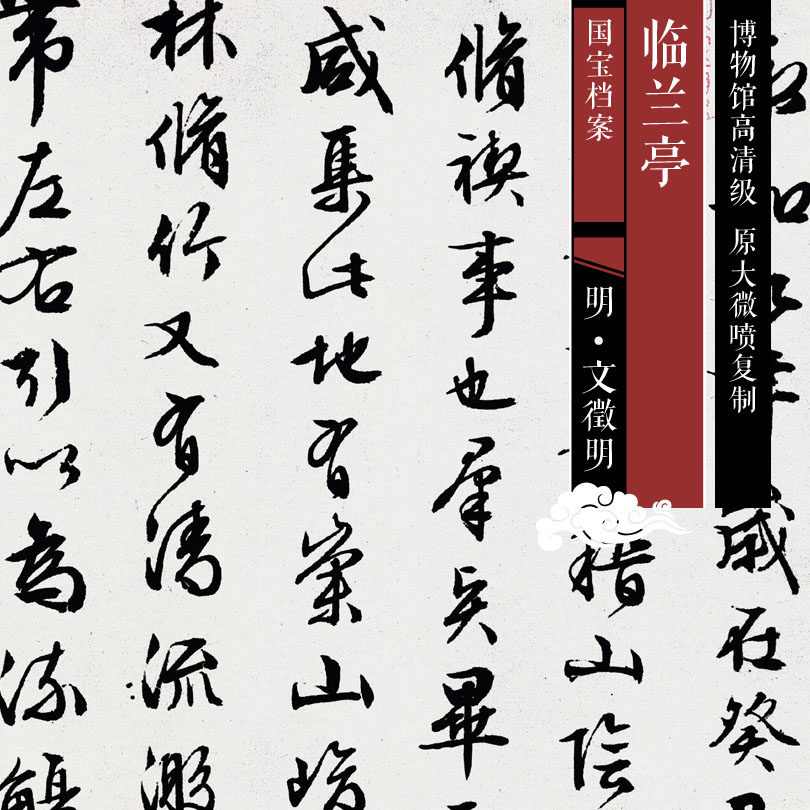 博物馆高清级 原大微喷复制
临兰亭
国宝档案
明·文徵明
歲在癸
稽山陰
脩禊事也羣賢畢
咸集此地有崇山峻
林脩竹又有清流激
帶左右引以為流觴